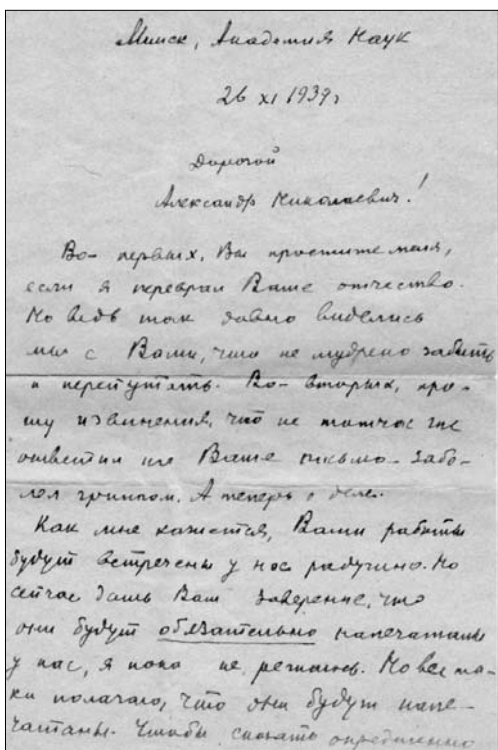 Минск, Академия Наук
26 XI 1939 г
Дорогой
Александр Николаевич!
Во-первых, Вы простите меня,
если я переврал Ваше отчество.
Но ведь так давно виделись
мы с Вами, что не мудрено забыть
и перепутать. Во-вторых, про-
шу извинения, что не тотчас же
ответил на Ваше письмо - забо-
лел гриппом. А теперь о деле.
Как мне кажется, Ваши работы
будут встречены у нас радушно. Но
сейчас дать Вам заверение, что
они будут обязательно напечатаны
у нас, я пока не решаюсь. Но все та-
ки полагаю, что они будут напе-
чатаны. Чтобы сказать определенно